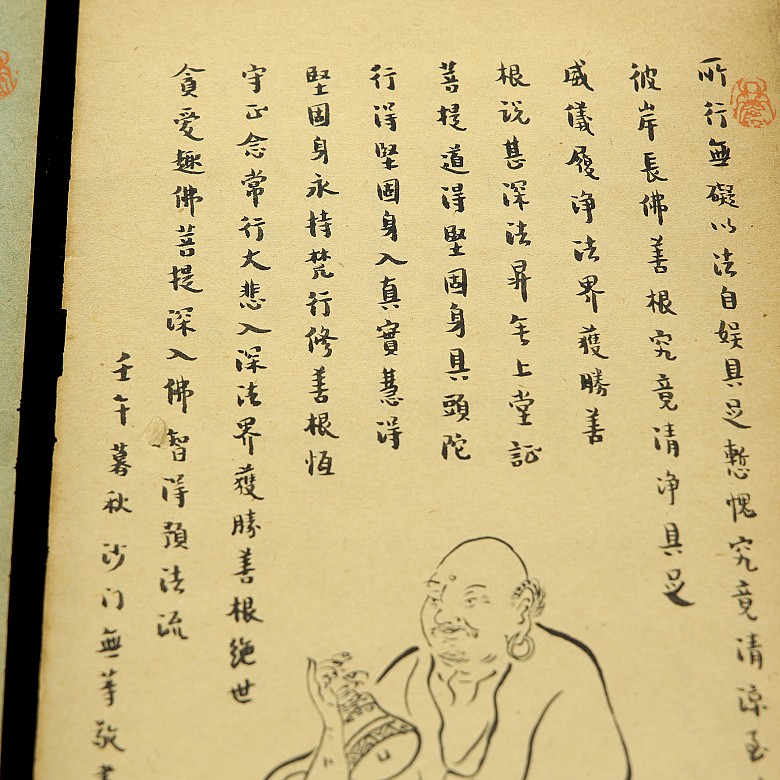 所行無礙以法自娱具足慙愧究竟清涼至
彼岸長佛善根究竟清净具足
威儀履净法界獲勝善
根说甚深法昇無上堂証
菩提道得堅固身具頭陀
行得堅固身入真實慧得
堅固身永持梵行修善根恆
守正念常行大悲入深法界獲勝善根絶世
貪愛趣佛菩提深入佛智得預法流
壬午暮秋沙门無等敬書